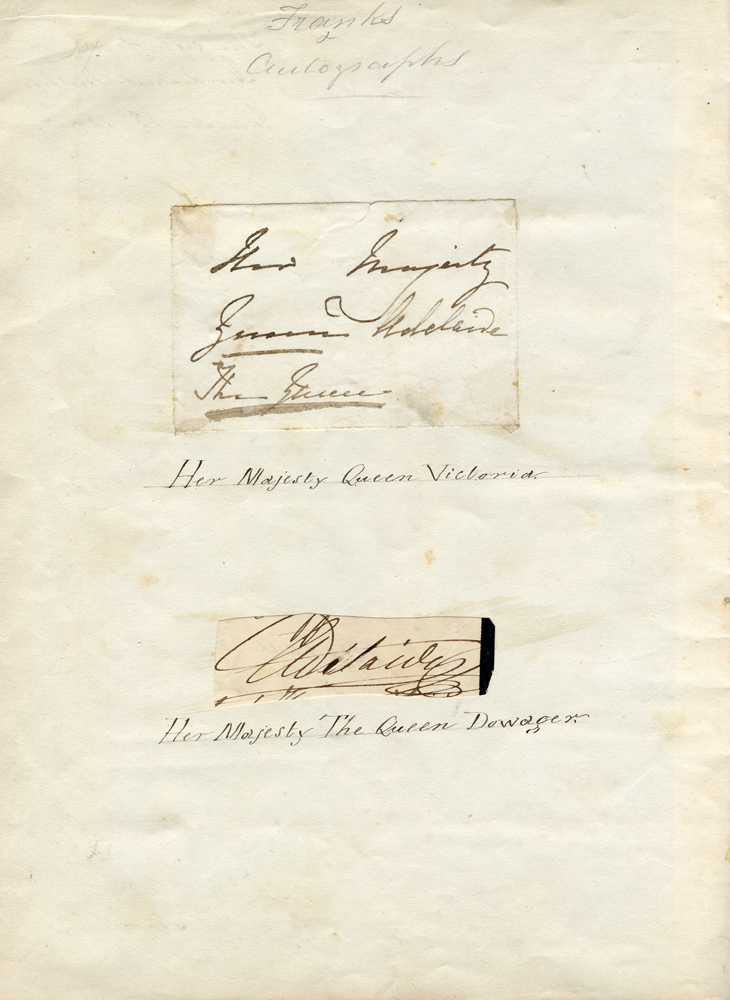 Franks
&
Autographs
Her Majesty
Queen Adelaide
The Queen
Her Majesty Queen Victoria.
Adelaide
Her Majesty The Queen Dowager.